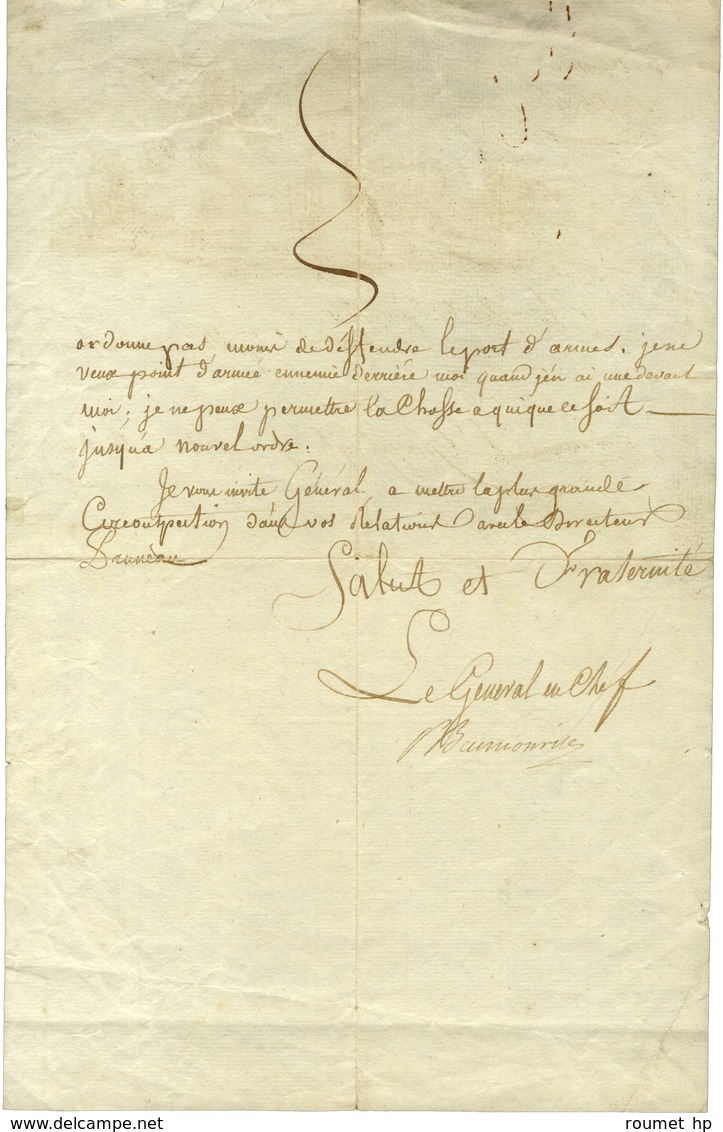 ordonne pas moins de déffendre le port d'armes. je ne
veux point d'armée ennemie derrière moi quand j'en ai une devant
moi; je ne peux permettre la Chasse a qui que ce soit
jusqu'a nouvel ordre.
Je vous invite Général a mettre la plus grande
Circonspection dans vos Relations avec le Directeur
Salut et Fraternité
Le Général en Chef
www.delcampe.net
roumet hp